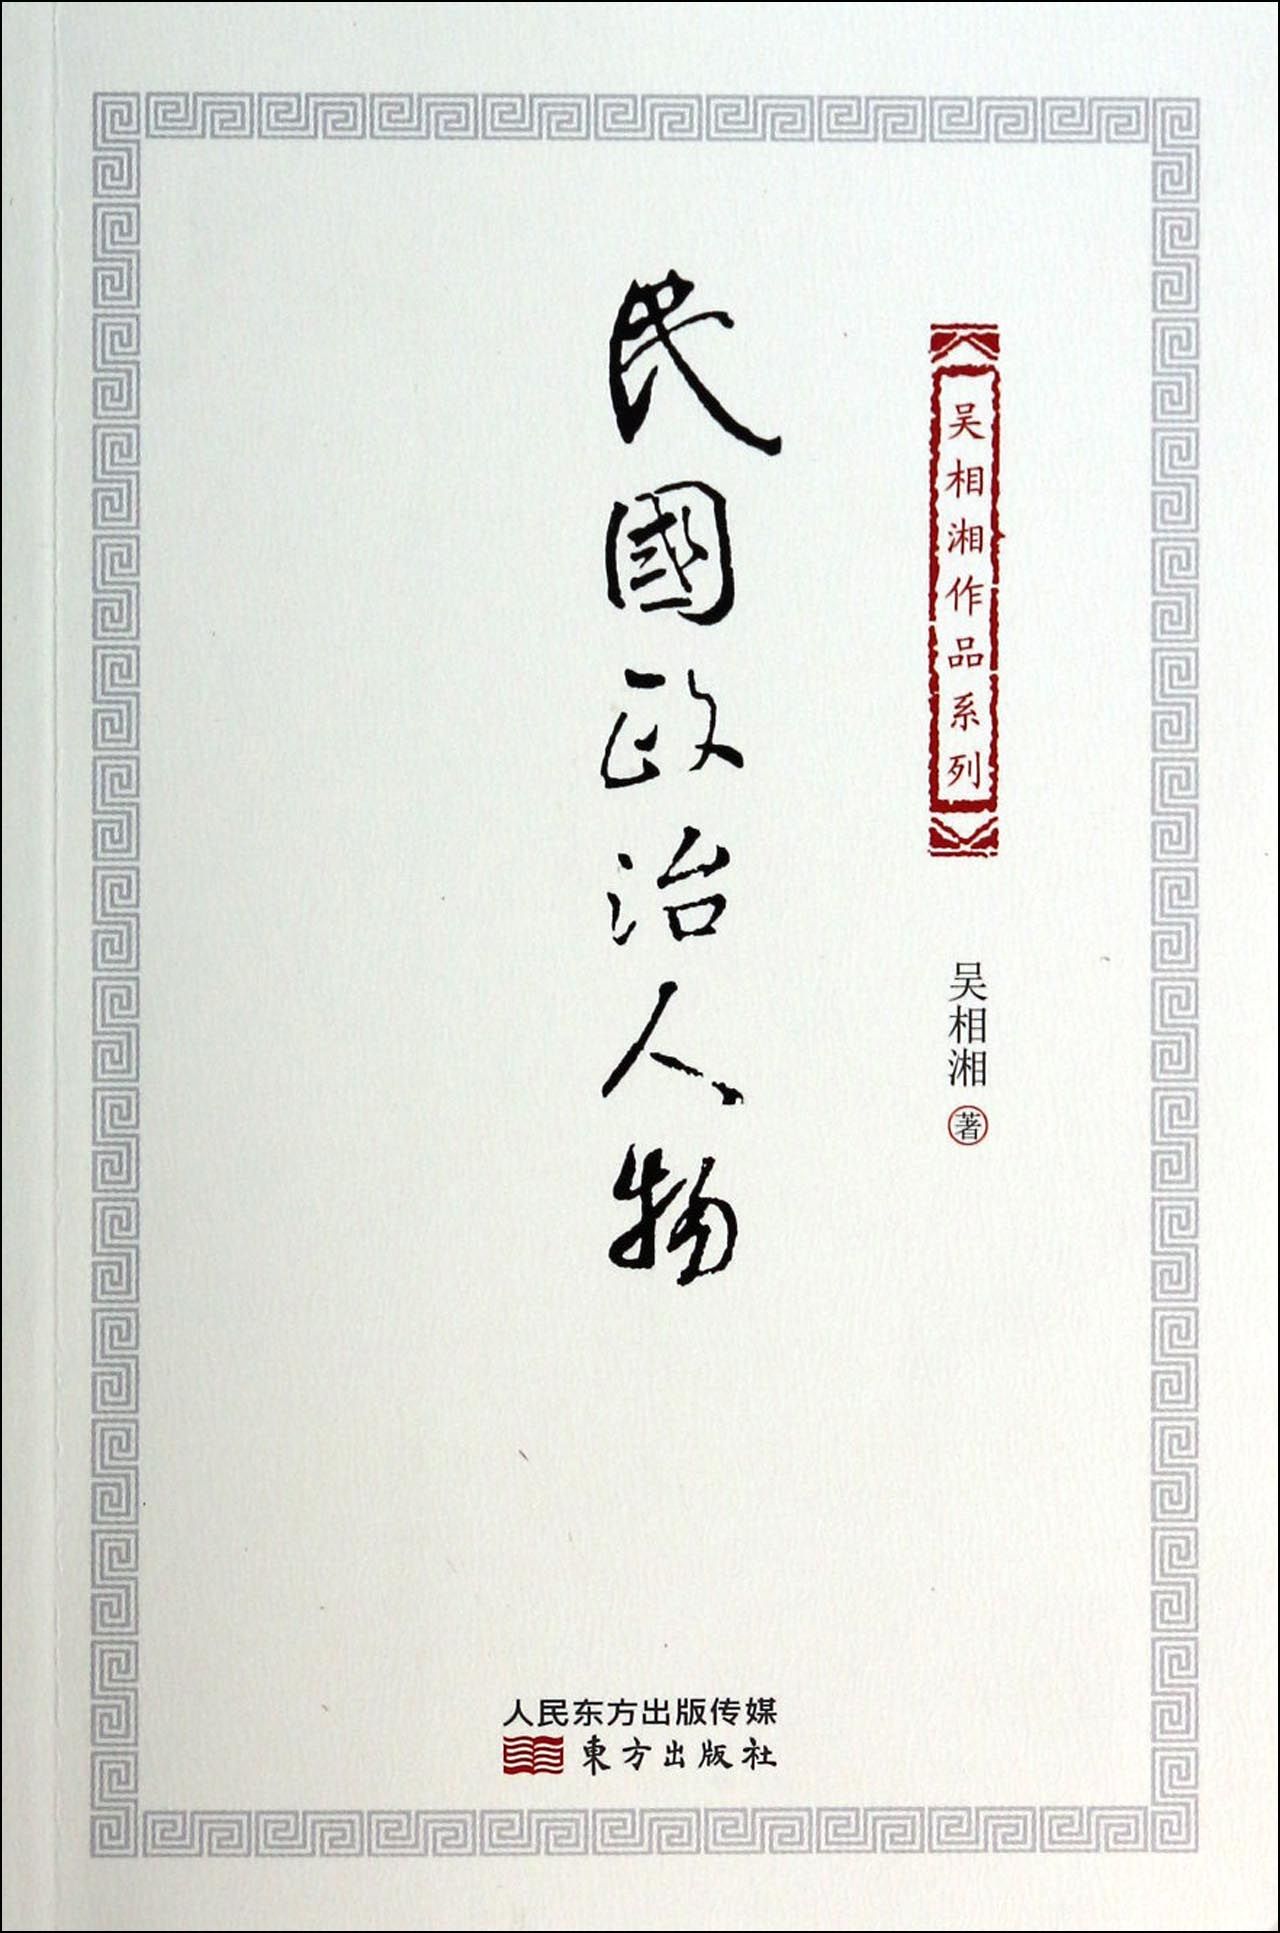 吴相湘作品系列
吴相湘 著
民國政治人物
人民东方出版传媒
東方出版社